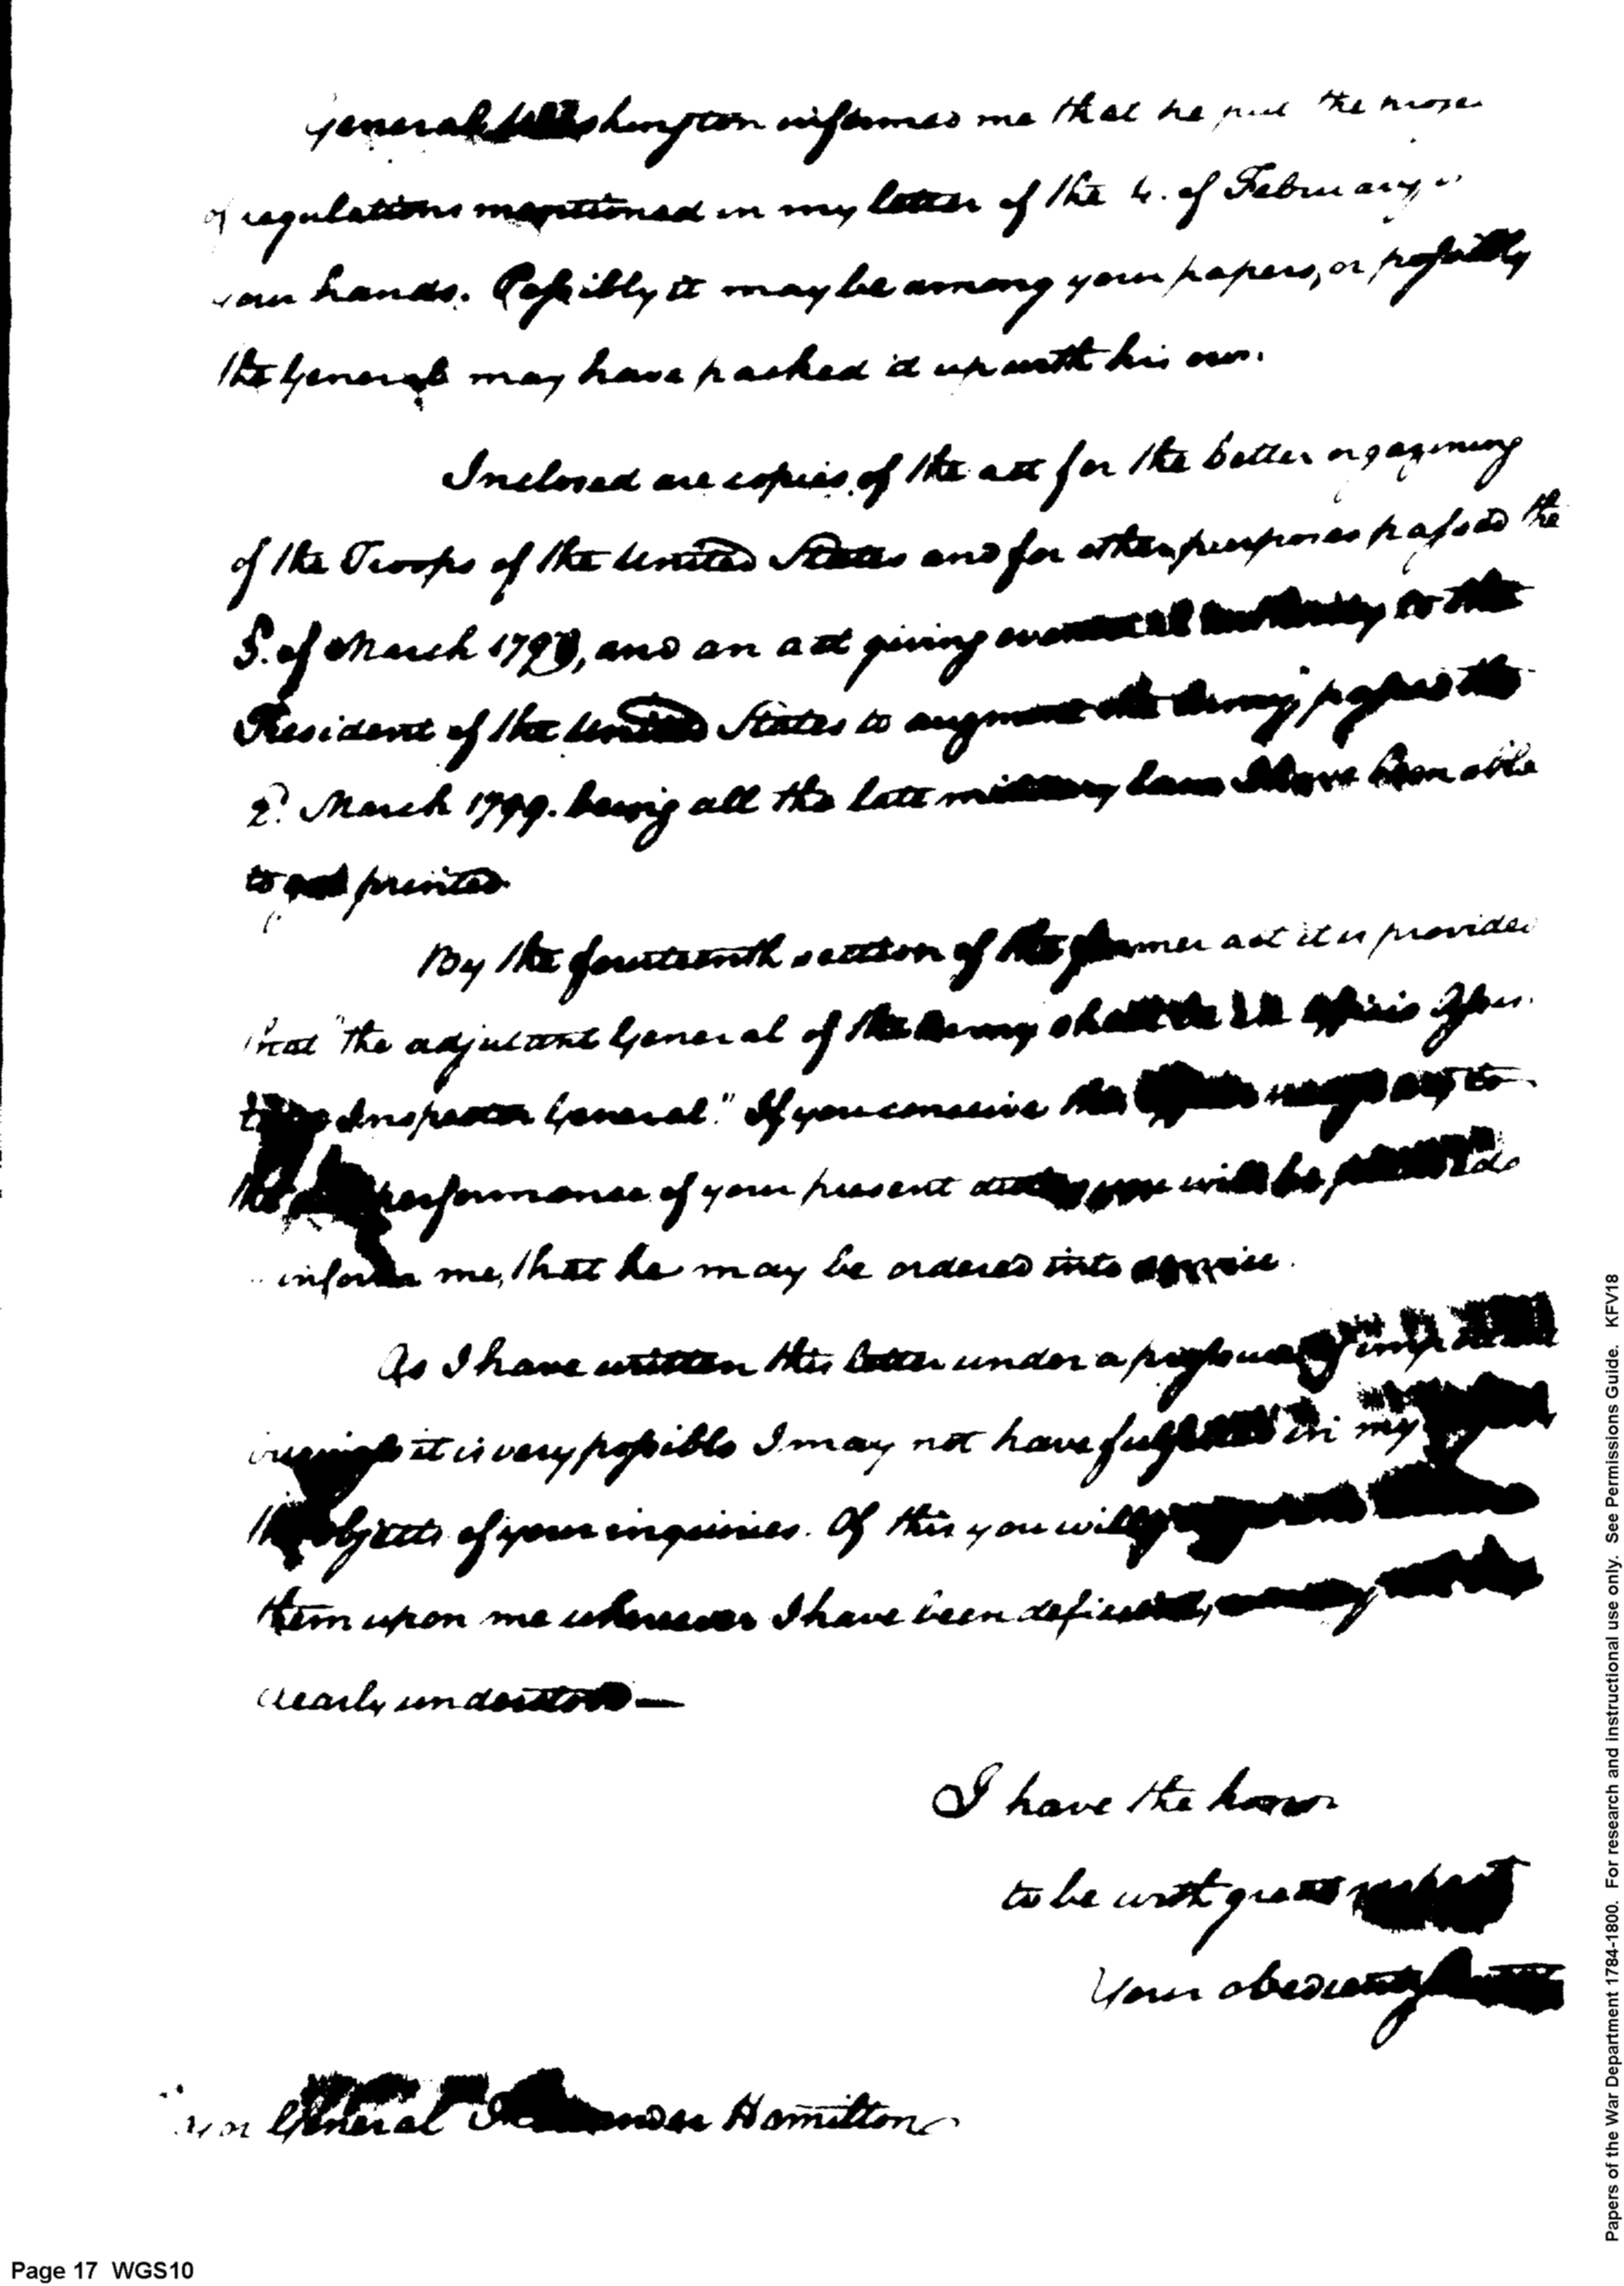 General Washington informes me that he put the
of regulations mentioned in my letter of the 4. of February
your hands. Possibly it may be among your papers, or possibly
the General may have packed it up with his own.
Inclosed are copies of the act for the better organizing
of the Troops of the United States and for other purposes passed the
of March 1799, and an act giving eventual authority to the
President of the United States to augment the Army, passed the
2d March 1799. being all the late military laws I have been able
to get printed
By the fourteenth section of the former act it is provided
that "the adjutant General of the Army shall be
Inspector General." If you conceive
the performance of your present you will be
inform me, that he may be ordered into service.
As I have written this letter under a of
it is very possible I may not have in my
the objects of your inquiries. Of this you will
them upon me wherever I have been deficient,
clearly understood —
I have the honor
to be with great respect
Your obedient
General Alexander Hamilton
Page 17 WGS10
Papers of the War Department 1784-1800. For research and instructional use only. See Permissions Guide. KFV18